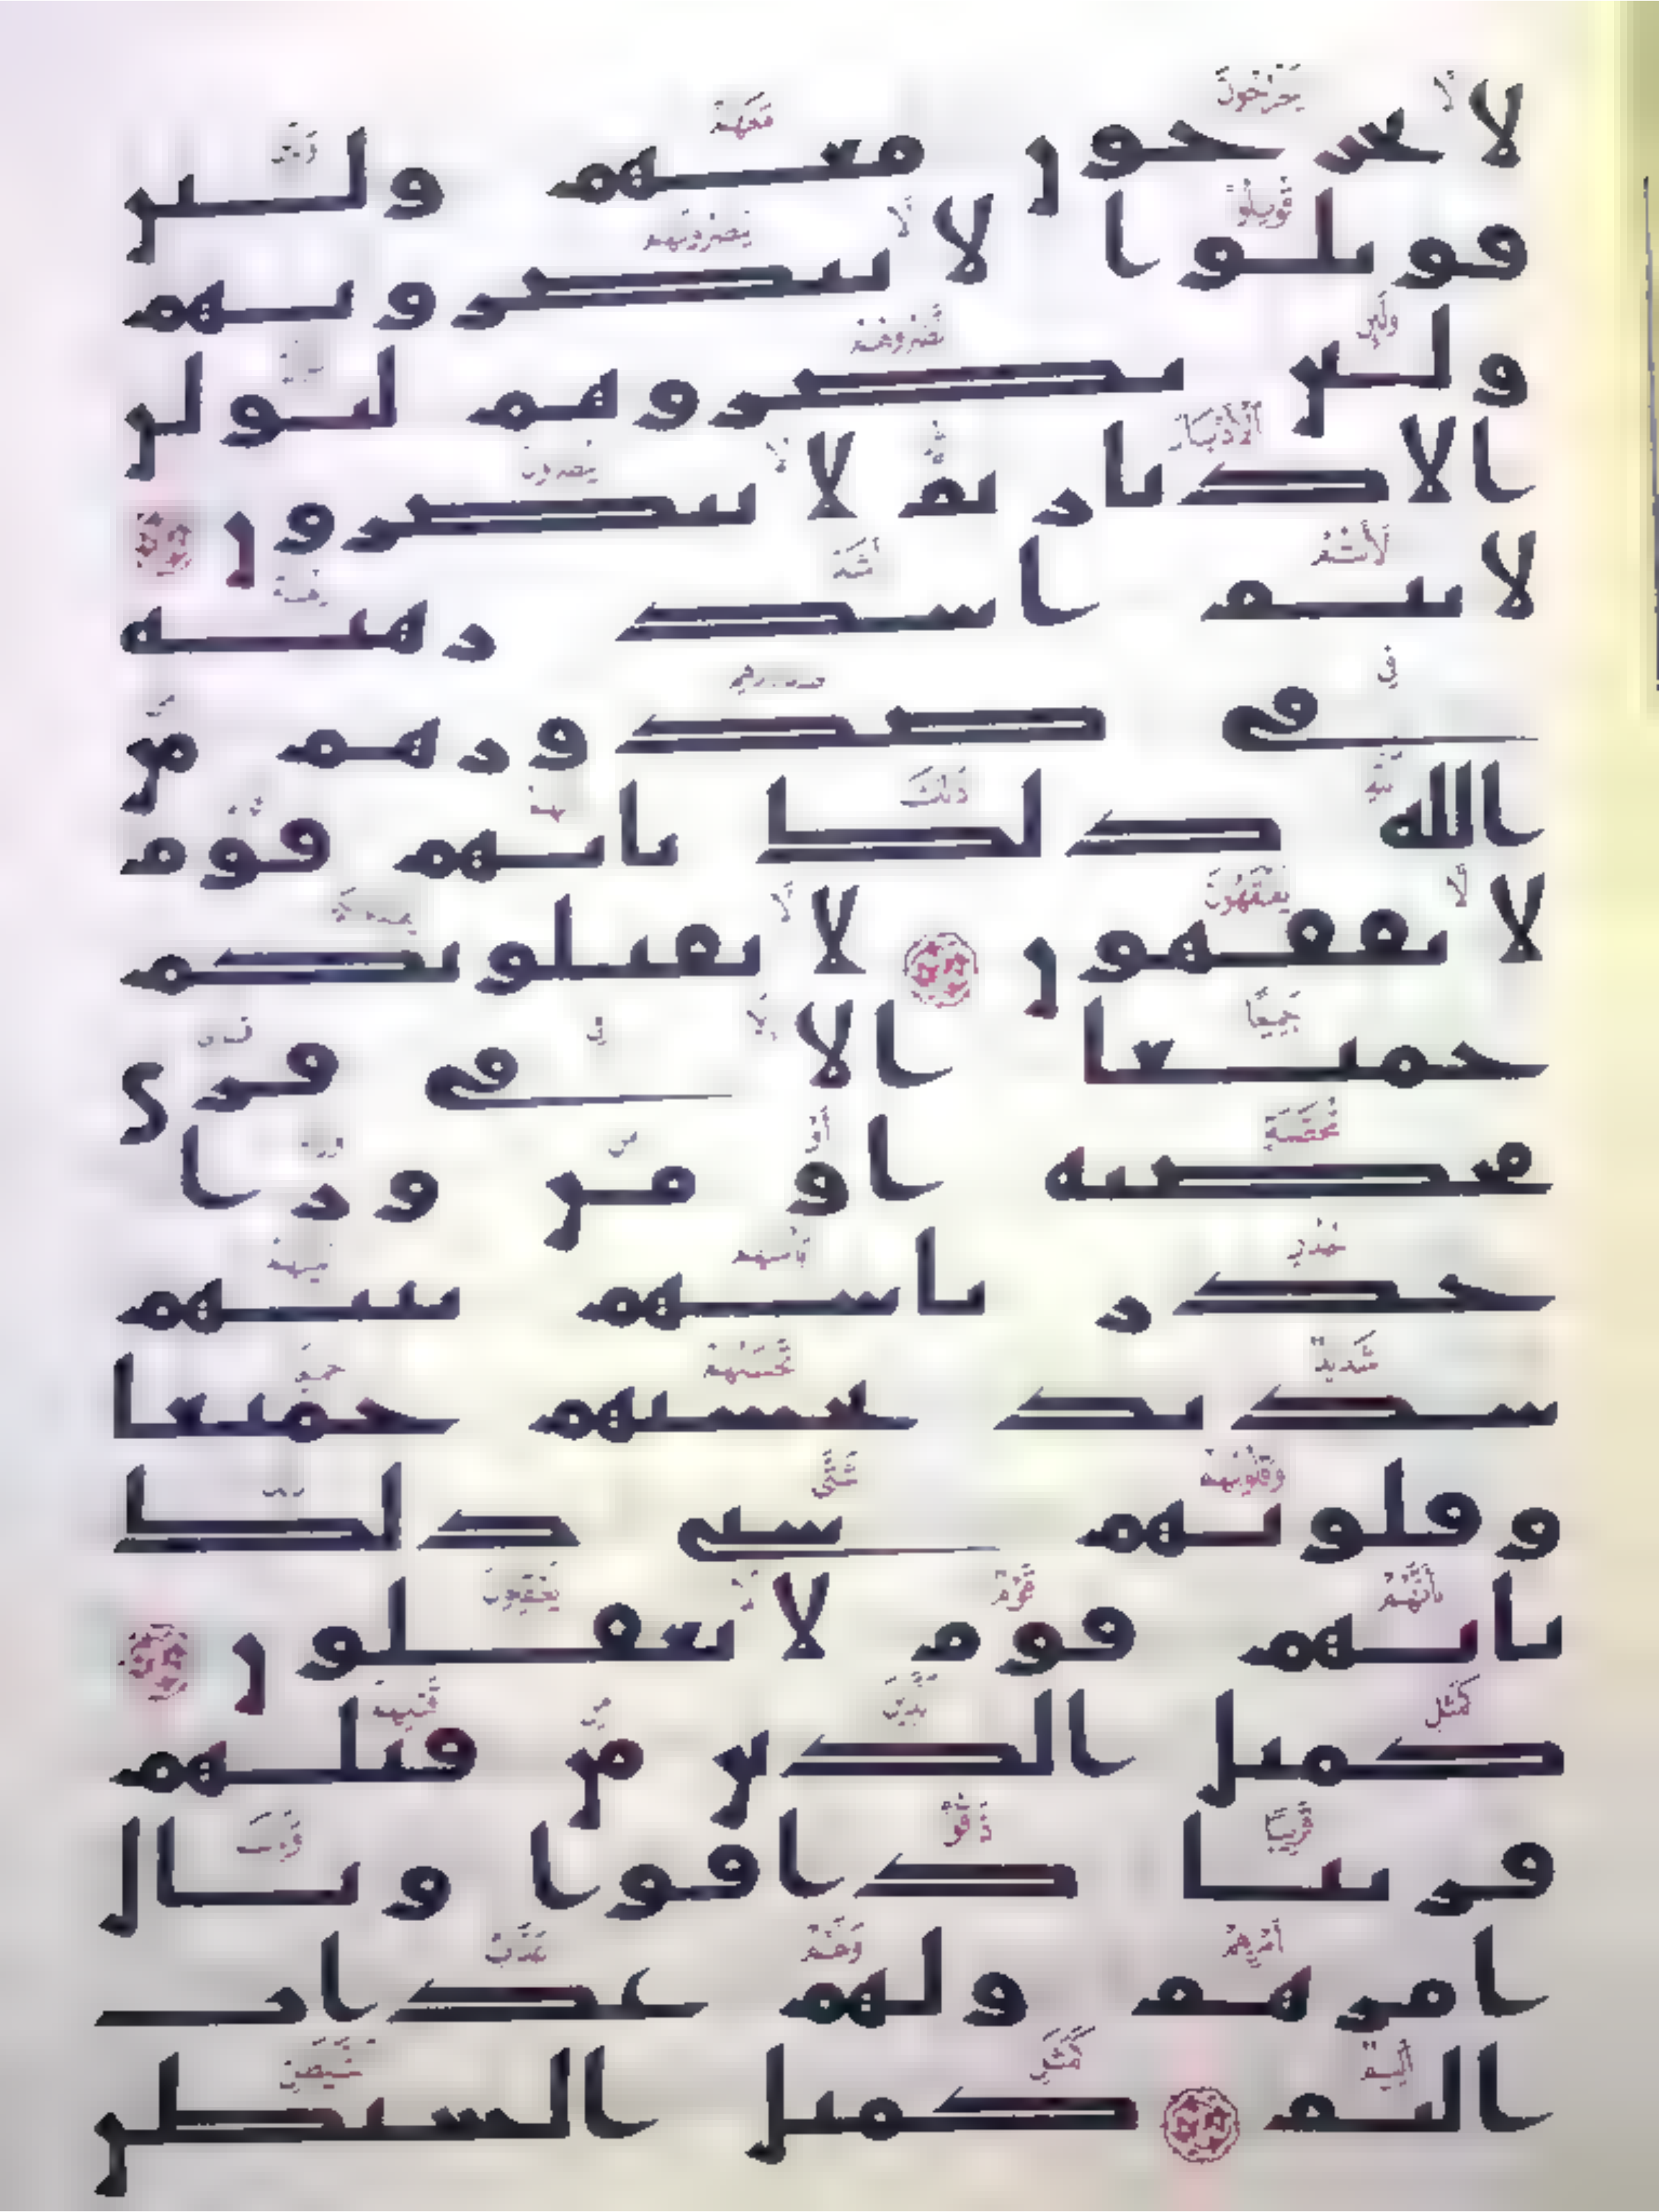 لا يخرجون معهم ولين
قوتلوا لا ينصرونهم
ولين نصروهم ليولن
الادبار ثم لا ينصرون
لانتم اشد رهبة
في صدورهم من
الله ذلك بانهم قوم
لا يفقهون لا يقتلونكم
جميعا الا في قرى
محصنة او من ورا
جدر باسهم بينهم
شديد تحسبهم جميعا
وقلوبهم شتى ذلك
بانهم قوم لا يعقلون
كمثل الذين من قبلهم
قريبا ذاقوا وبال
امرهم ولهم عذاب
اليم كمثل الشيطن